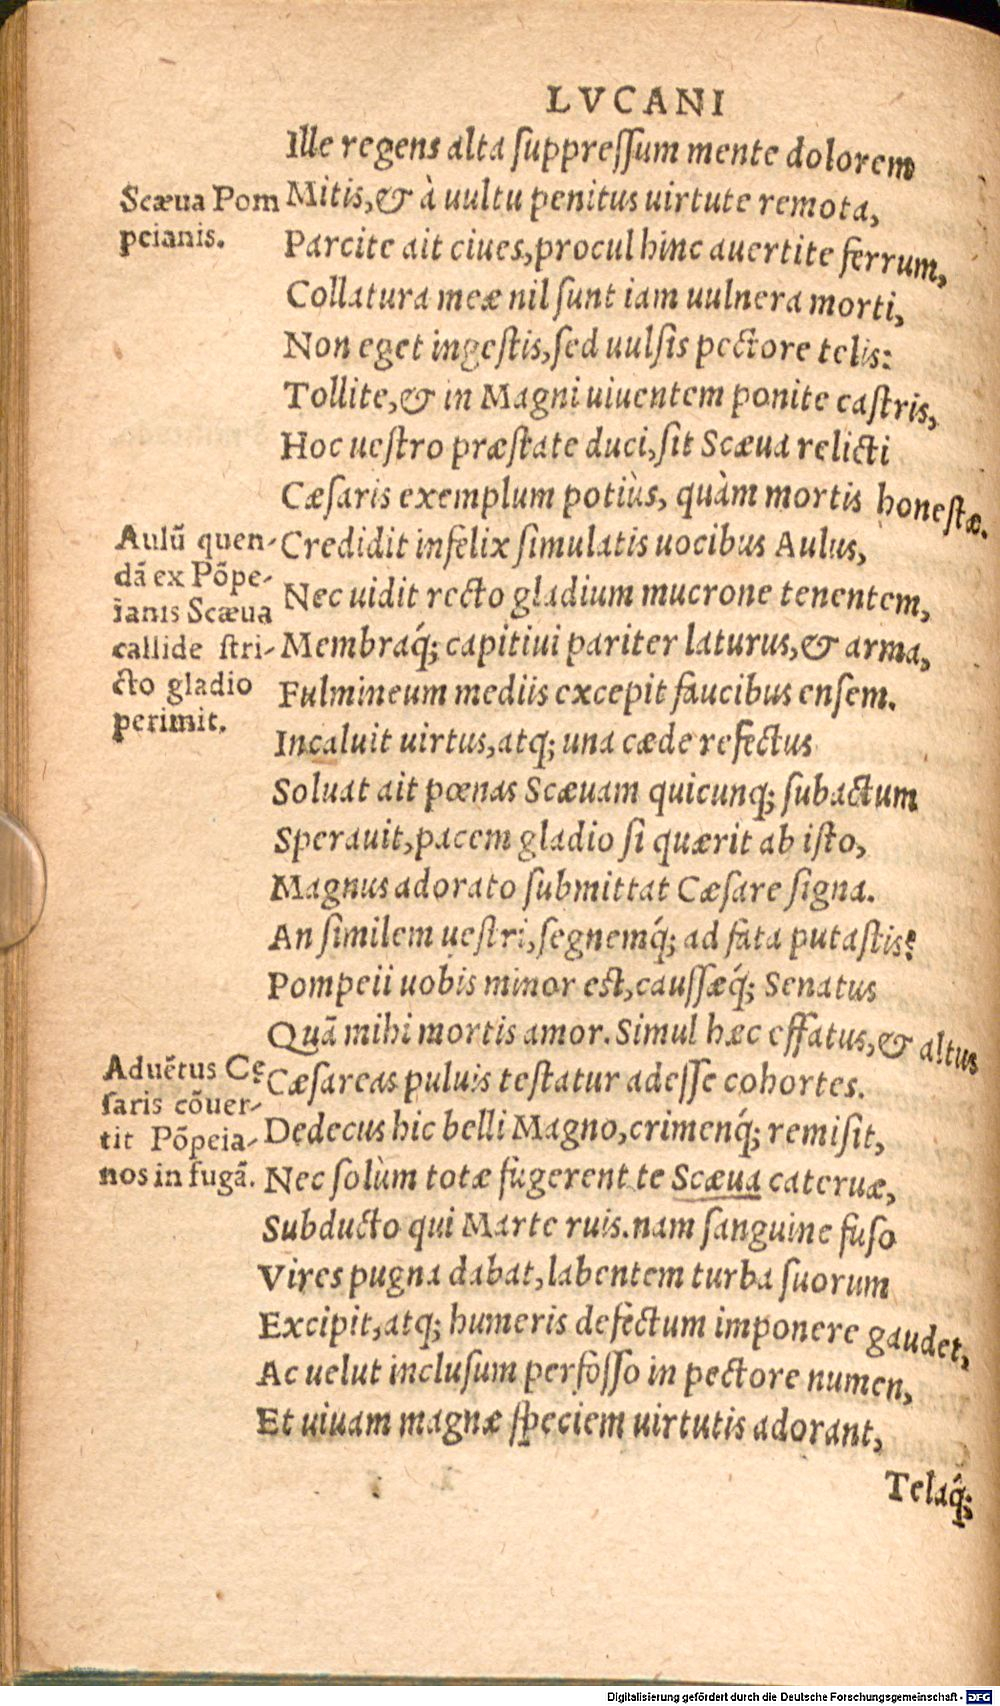 LVCANI
Ille regens alta ſuppreſſum mente dolorem
Scæua Pom
peianis.
Mitis,& à uultu penitus uirtute remota,
Parcite ait ciues,procul hinc auertite ferrum,
Collatura meæ nil ſunt iam uulnera morti,
Non eget ingeſtis,ſed uulſis pectore telis:
Tollite,& in Magni uiuentem ponite caſtris,
Hoc ueſtro præſtate duci,ſit Scæua relicti
Cæſaris exemplum potiùs, quàm mortis honeſtæ.
Aulũ quen-
dã ex Põpe-
ianis Scæua
callide ſtri-
cto gladio
perimit.
Credidit infelix ſimulatis uocibus Aulus,
Nec uidit recto gladium mucrone tenentem,
Membraq́; capitiui pariter laturus,& arma,
Fulmineum mediis excepit faucibus enſem.
Incaluit uirtus,atq; una cæde refectus
Soluat ait pœnas Scæuam quicunq; ſubactum
Sperauit,pacem gladio ſi quærit ab iſto,
Magnus adorato ſubmittat Cæſare ſigna.
An ſimilem ueſtri,ſegnemq́; ad fata putaſtis?
Pompeii uobis minor eſt,cauſſæq́; Senatus
Quã mihi mortis amor. Simul hæc effatus,& altus
Aduẽtus Cę
ſaris cõuer-
tit Põpeia-
nos in fugã.
Cæſareas puluis teſtatur adeſſe cohortes.
Dedecus hic belli Magno,crimenq́; remiſit,
Nec ſolùm totæ fugerent te Scæua cateruæ,
Subducto qui Marte ruis.nam ſanguine fuſo
Vires pugna dabat,labentem turba ſuorum
Excipit,atq; humeris defectum imponere gaudet,
Ac uelut incluſum perfoſſo in pectore numen,
Et uiuam magnæ ſpeciem uirtutis adorant,
Telaq́;
Digitalisierung gefördert durch die Deutsche Forschungsgemeinschaft - DFG